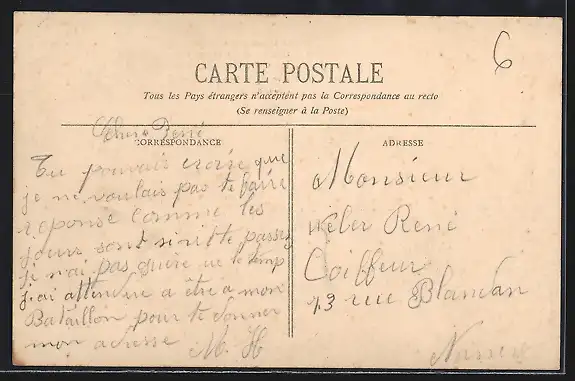 6
CARTE POSTALE
Tous les Pays étrangers n'acceptent pas la Correspondance au recto
(Se renseigner à la Poste)
CORRESPONDANCE
ADRESSE
Cher René
Tu pouvais croire que
je ne voulais pas te faire
reponse comme les
jours sont si vitte passez
je n'ai pas guire le temp
j'ai attendue a être a mon
Bataillon pour te donner
mon adresse M. H
Monsieur
René
Coiffeur
13 rue Blandan